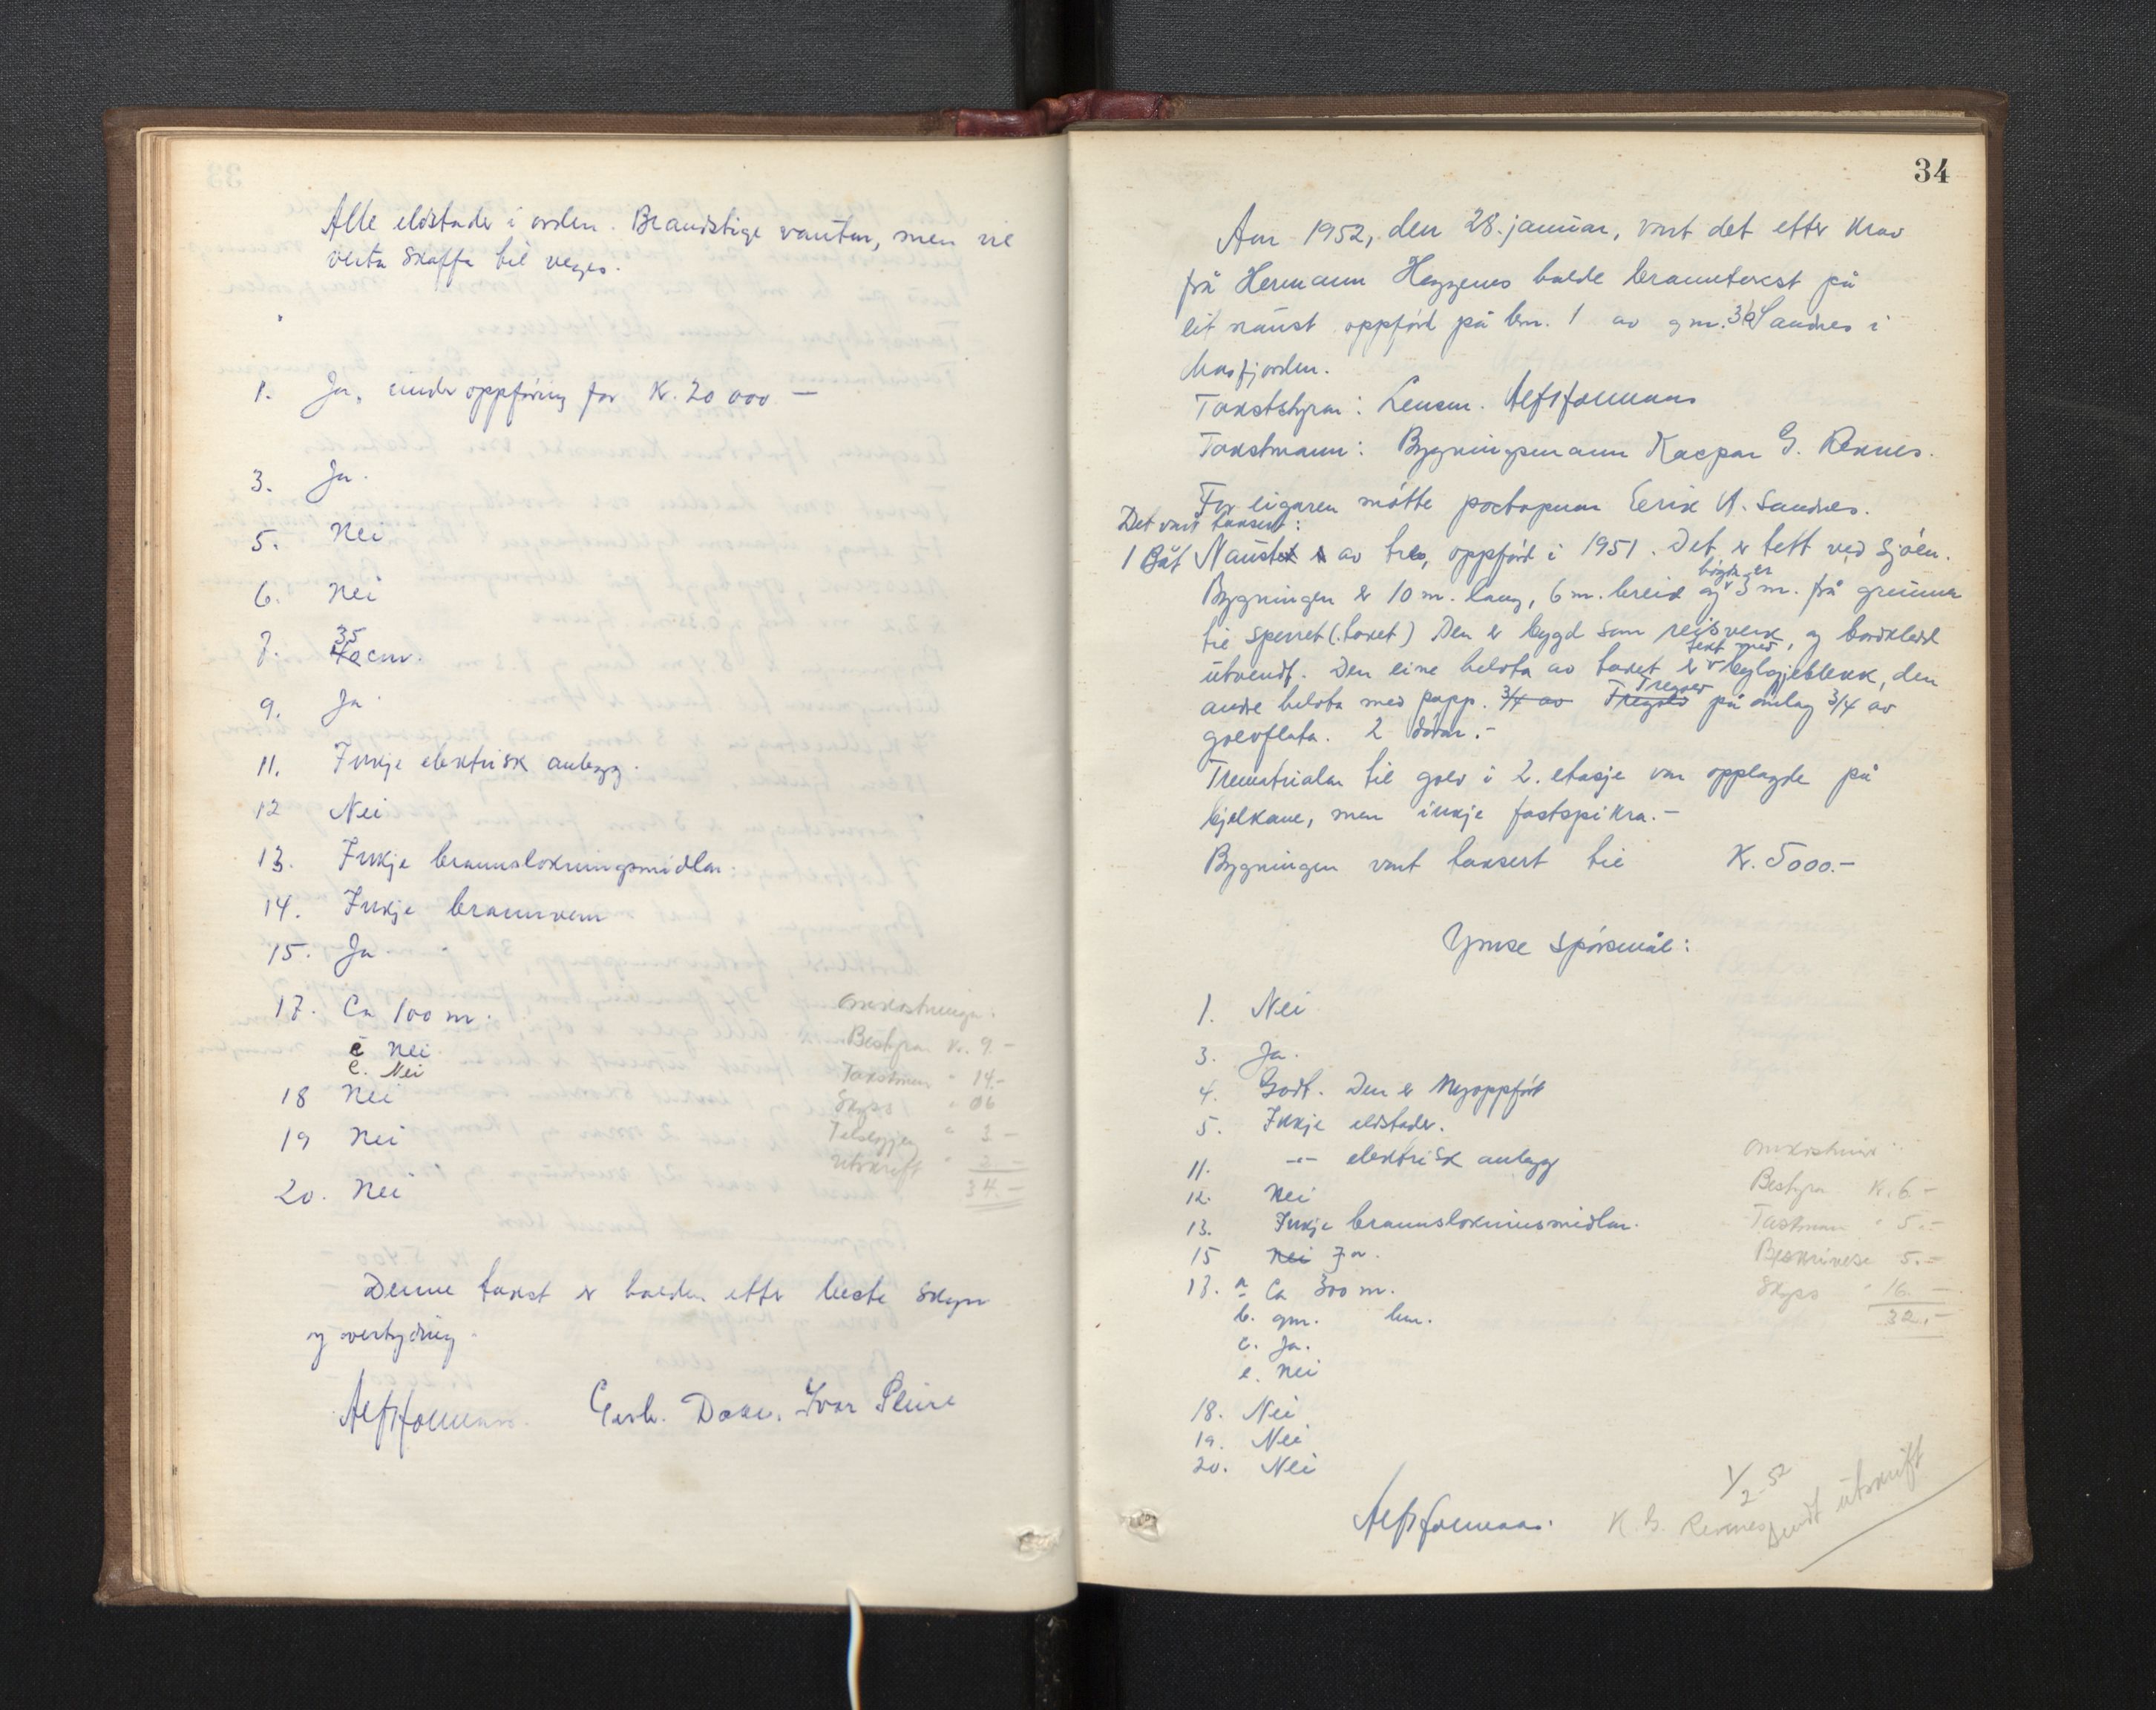 Alle eldstader i orden. Brandstige vantar, men vil
verta skaffa til veges.
1. Ja, under oppføring for K. 20 000.—
3. Ja.
5. Nei
6. Nei
7. 35 40 cm.
9. Ja
11. Inkje elektrisk anlegg.
12 Nei
13. Inkje brannslokningsmidlar.
14. Inkje brannvern
15. Ja
17. Ca 100 m.
c Nei
e. Nei
18 Nei
19 Nei
20. Nei
Omkostninga.
Bestyrar K. 9.—
Takstmenn " 14.—
Skyss " 06
Tilleggjeg " 3.—
Utskrift " 2.—
34.—
Denne takst er halden etter beste skyn
og overtyding.
Alf Houmann. Gerh. Dale. Ivar Pleire
34
Aar 1952, den 28. januar, vart det etter krav
frå Hermann Heggenes halde branntakst på
eit naust oppførd på bnr. 1 av gnr. 36 Sandnes i
Masfjorden.
Takststyrar: Lensm. Alf Houmann
Takstmann: Bygningsmann Kaspar G. Reknes.
For eigaren møtte postopnar Eerik A. Sandnes.
Det vart taksert:
1 Båt Naustet er av tre, oppførd i 1951. Det er tett ved sjøen.
Bygningen er 10 m. lang, 6 m. breid og høgda er 3 m. frå grunnen
til sperret (taket) Den er bygd som reisverk, og bordkledd
utvendt. Den eine helvta av taket er tekt med bylgjeblekk, den
andre helvta med papp. 3/4 av Tregolv Tregolv på omlag 3/4 av
golvflata. 2 dørar.—
Trematrialar til golv i 2. etasje var opplagde på
bjelkane, men inkje fastspikra.—
Bygningen vart taksert til K. 5000.—
Ymse spørsmål:
1. Nei
3. Ja.
4. Godt. Den er Nyoppført
5. Inkje eldstader.
11. —"— elektrisk anlegg
12. Nei
13. Inkje brannslokningsmidlar.
15 Nei Ja.
17. a Ca 300 m.
b. gnr. bnr.
c. Ja.
e. Nei
18. Nei
19. Nei
20. Nei
Omkostning
Bestyrar K. 6.—
Takstmann " 5.—
Beskrivelse 5.—
Skyss " 16.—
32.—
Alf Houmann.
1/2-52
K. G. Reknes sendt utskrift